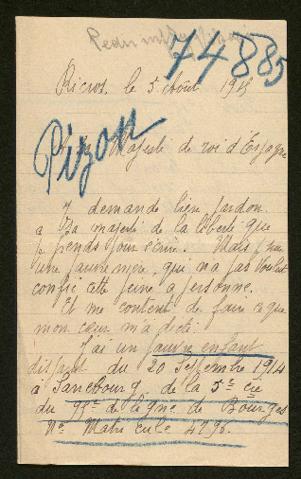 74885
le 5 août 19
Pizon
Majesté de roi d'Espagne
J demande bien pardon
a Sa majesté de la liberté que
je prends pour écrire. Mais
une pauvre mère, qui n'a pas voulut
confié cette peine a personne.
Et me content de faire ce que
mon cœur m'a dicté.
J'ai un pauvre enfant
disparut du 20 Septembre 1914
à Sarrebourg, de la 5e Cie
du 95e de ligne de Bourges
No Matricule 4790.